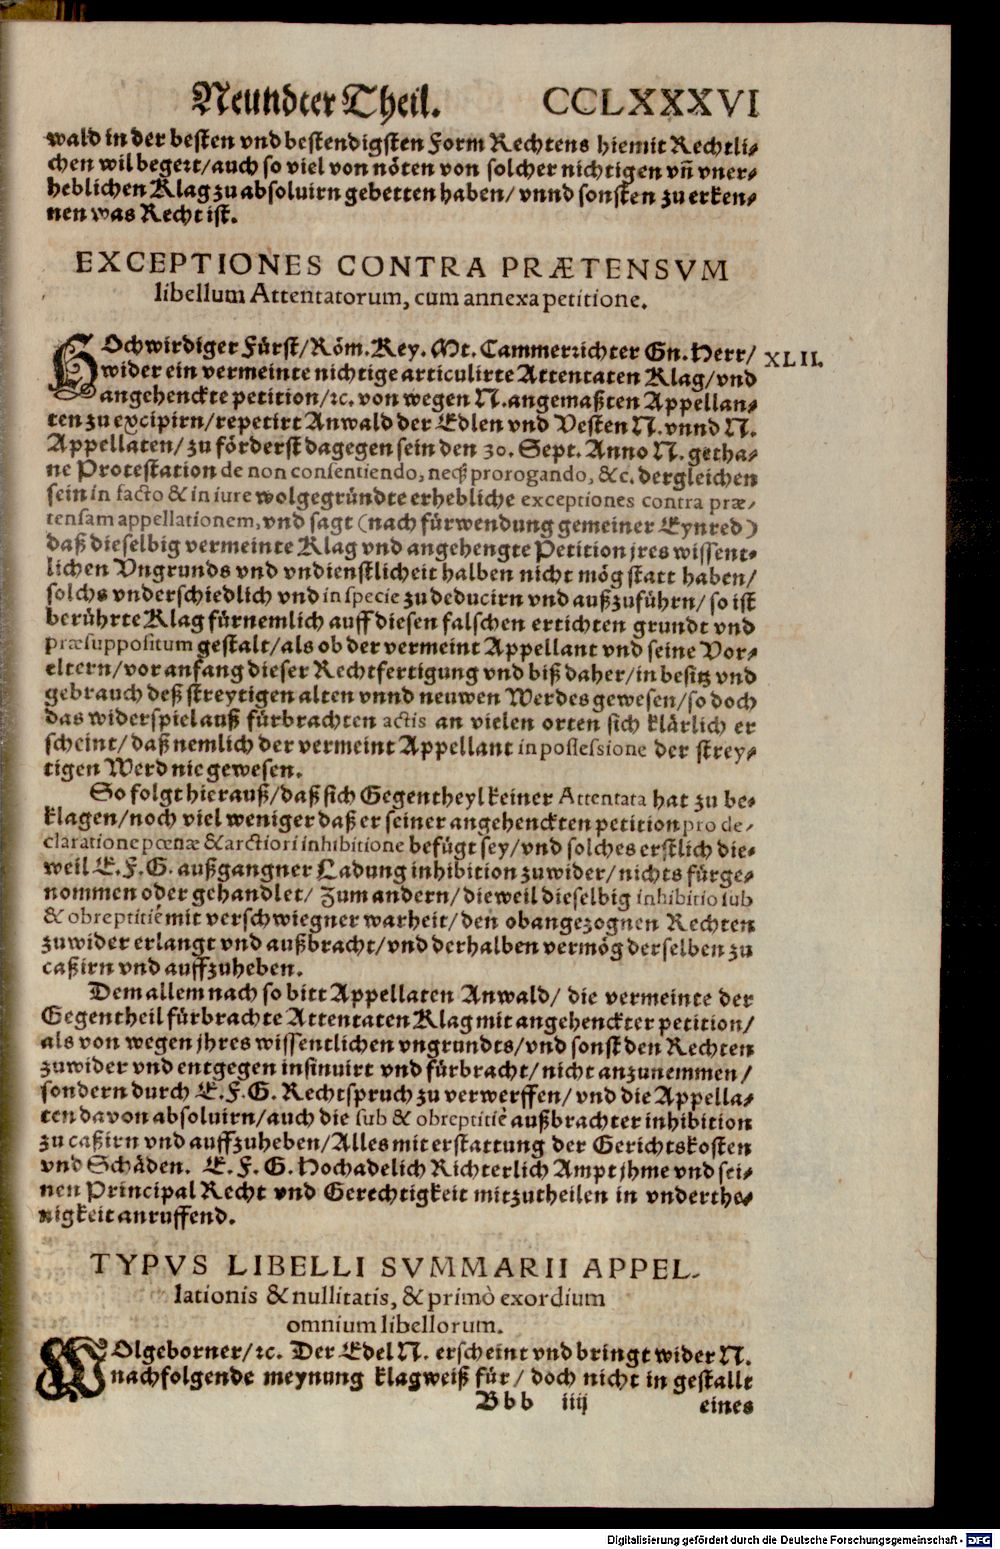 Neundter Theil. CCLXXXVI
wald in der besten vnd bestendigsten Form Rechtens hiemit Rechtli-
chen wil begert/auch so viel von nöten von solcher nichtigen vñ vner-
heblichen Klag zu absoluirn gebetten haben/ vnnd sonsten zu erken-
nen was Recht ist.
EXCEPTIONES CONTRA PRÆTENSVM
libellum Attentatorum, cum annexa petitione.
HOchwirdiger Fürst/Röm. Key. Mt. Cammerrichter Gn. Herr/ XLII.
wider ein vermeinte nichtige articulirte Attentaten Klag/vnd
angehenckte petition/ꝛc. von wegen N. angemaßten Appellan-
ten zu excipirn/repetirt Anwald der Edlen vnd Vesten N. vnnd N.
Appellaten/ zu förderst dagegen sein den 30. Sept. Anno N. getha-
ne Protestation de non consentiendo, neq; prorogando, &c. dergleichen
sein in facto & in iure wolgegründte erhebliche exceptiones contra præ-
tensam appellationem, vnd sagt (nach fürwendung gemeiner Eynred)
daß dieselbig vermeinte Klag vnd angehengte Petition jres wissent-
lichen Vngrunds vnd vndienstlicheit halben nicht mög statt haben/
solchs vnderschiedlich vnd in specie zu deducirn vnd außzuführn/ so ist
berührte Klag fürnemlich auff diesen falschen ertichten grundt vnd
præsuppositum gestalt/als ob der vermeint Appellant vnd seine Vor-
eltern/vor anfang dieser Rechtfertigung vnd biß daher/in besitz vnd
gebrauch deß streytigen alten vnnd neuwen Werdes gewesen/so doch
das widerspiel auß fürbrachten actis an vielen orten sich klärlich er
scheint/daß nemlich der vermeint Appellant in possessione der strey-
tigen Werd nie gewesen.
So folgt hierauß/daß sich Gegentheyl keiner Attentata hat zu be-
klagen/noch viel weniger daß er seiner angehenckten petition pro de-
claratione pœnæ & arctiori inhibitione befügt sey/vnd solches erstlich die-
weil E. F. G. außgangner Ladung inhibition zuwider/nichts fürge-
nommen oder gehandlet/ Zum andern/dieweil dieselbig inhibitio sub
& obreptitiè mit verschwiegner warheit/den obangezognen Rechten
zuwider erlangt vnd außbracht/vnd derhalben vermög derselben zu
caßirn vnd auffzuheben.
Dem allem nach so bitt Appellaten Anwald/ die vermeinte der
Gegentheil fürbrachte Attentaten Klag mit angehenckter petition/
als von wegen jhres wissentlichen vngrundts/vnd sonst den Rechten
zuwider vnd entgegen insinuirt vnd fürbracht/nicht anzunemmen/
sondern durch E. F. G. Rechtspruch zu verwerffen/ vnd die Appella-
ten dauon absoluirn/auch die sub & obreptitiè außbrachter inhibition
zu caßirn vnd auffzuheben/Alles mit erstattung der Gerichtskosten
vnd Schäden. E. F. G. Hochadelich Richterlich Ampt jhme vnd sei-
nen Principal Recht vnd Gerechtigkeit mitzutheilen in vnderthe-
nigkeit anruffend.
TYPVS LIBELLI SVMMARII APPEL-
lationis & nullitatis, & primò exordium
omnium libellorum.
WOlgeborner/ꝛc. Der Edel N. erscheint vnd bringt wider N.
nachfolgende meynung klagweiß für/ doch nicht in gestallt
Bbb iiij eines
Digitalisierung gefördert durch die Deutsche Forschungsgemeinschaft - DFG